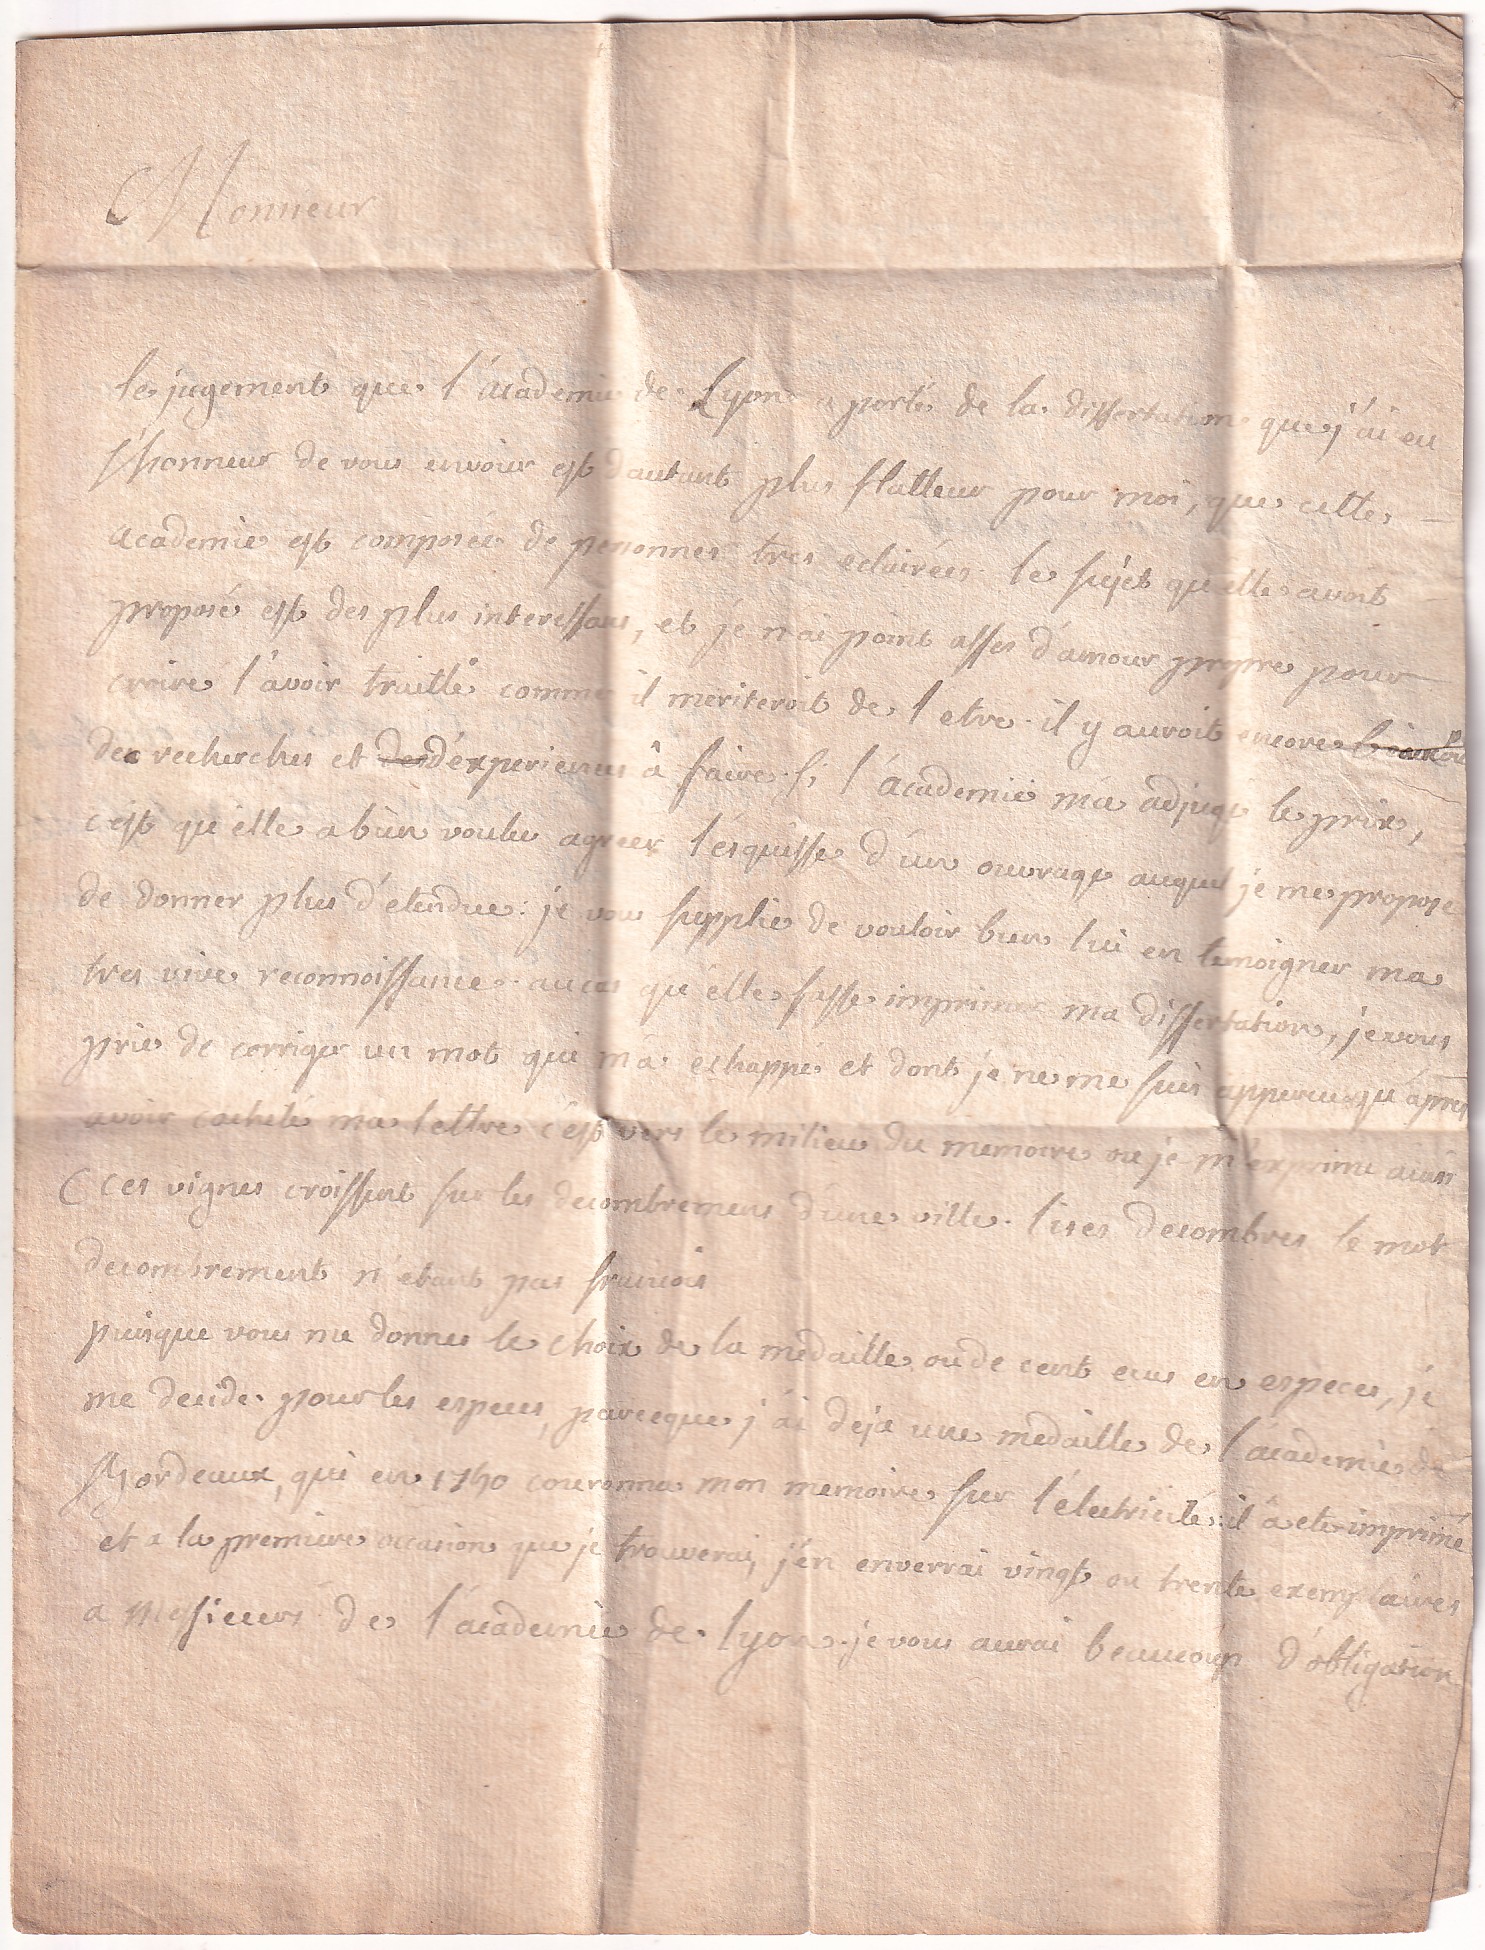 Monsieur
le jugement que l'academie de Lyon a porté de la dissertation que j'ai eu
l'honneur de vous envoier est d'autant plus flatteur pour moi, que cette
academie est composée de personnes tres eclairées. le sujet qu'elle avoit
proposé est des plus interessans, et je n'ai point asses d'amour propre pour
croire l'avoir traitté comme il meriteroit de l'etre. il y auroit encore
des recherches et d'experiences à faire. si l'académie m'a adjugé le prix,
c'est qu'elle a bien voulu agreer l'esquisse d'un ouvrage auquel je me propose
de donner plus d'etendue: je vous supplie de vouloir bien lui en temoigner ma
tres vive reconnoissance. au cas qu'elle fasse imprimer ma dissertation, je vous
prie de corriger un mot qui m'a echappe et dont je ne me suis apperceu qu'apres
avoir cacheté ma lettre c'est vers le milieu du memoire ou je m'exprime ainsi
(ces vignes croissent sur les decombremens d'une ville. lises decombres le mot
decombrement n'etant pas francois
puisque vous me donnes le choix de la medaille ou de cent ecus en especes, je
me decide pour les especes, parceque j'ai deja une medaille de l'academie de
Bordeaux, qui en 1750 couronna mon memoire sur l'électricité: il a ete imprimé
et a la premiere occasion que je trouverai, j'en enverrai vingt ou trente exemplaires
a Messieurs de l'academie de Lyon. je vous aurai beaucoup d'obligation